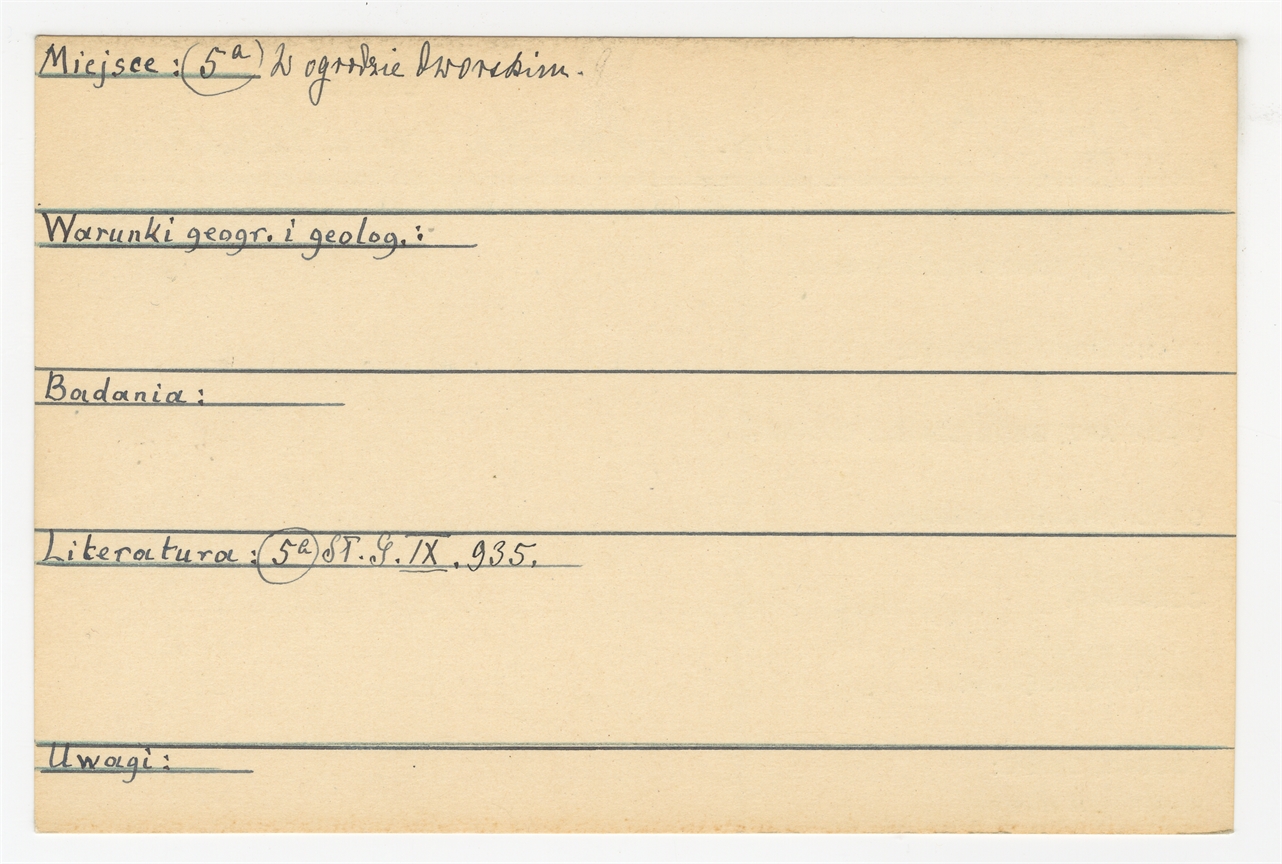 Miejsce : 5a W ogrodzie dworskim.
Warunki geogr. i geolog. :
Badania :
Literatura : 5a Sł. G. IX. 935.
Uwagi :